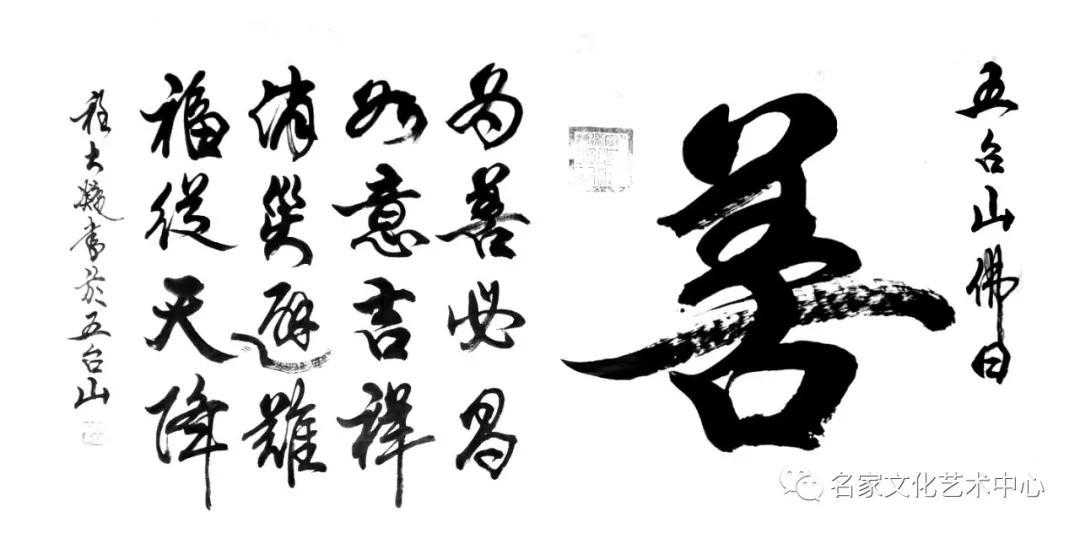 五台山佛曰
善
為善必昌
如意吉祥
消災避難
福從天降
程大書於五台山
名家文化艺术中心